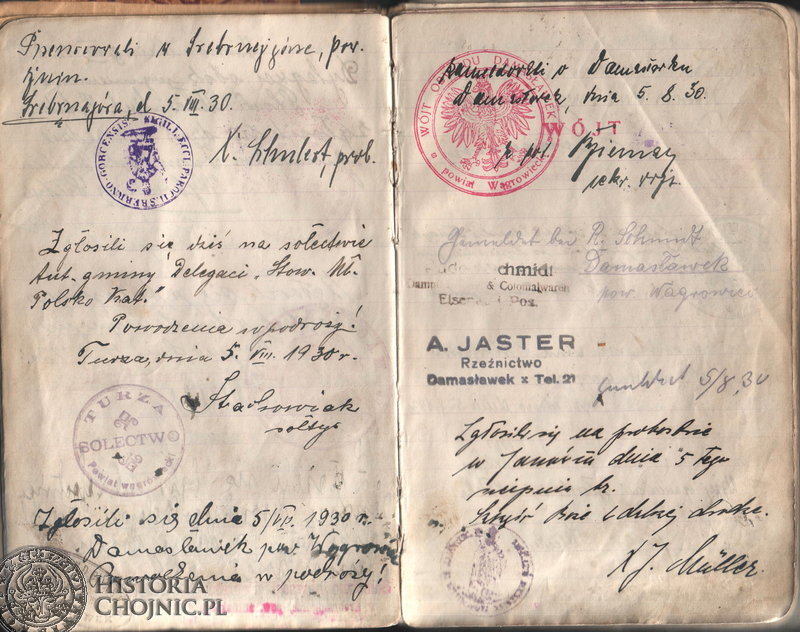 w Srebrnejgórze, pow.
Żnin.
Srebrnagóra, d 5. VIII. 30.
SIGILL. ECCL. PAROCH. SREBRNO-GORCENSIS
prob.
Zgłosili się dziś na sołectwie
tut. gminy Delegaci „Stow. Mł.
Polsko Kat."
Powodzenia w podróży!
Turza, dnia 5. VIII. 1930 r.
Stachowiak
sołtys
TURZA
SOŁECTWO
Powiat wągrowiecki
Zgłosili się dnia 5/VIII. 1930 r.
Damasławek pow Wągrowiec
Powodzenia w podróży!
Zameldowali w Damasławku
Damasławek, dnia 5. 8. 30.
WÓJT OBWODU DAMASŁAWEK
powiat Wągrowiec
WÓJT
sekr. wójt.
Gemeldet bei R. Schmidt
Damasławek
pow. Wągrowiec
chmidt
& Colonialwaren
A. JASTER
Rzeźnictwo
Damasławek x Tel. 21
5/8. 30
Zgłosili się na probostwie
w Janówcu dnia 5 tego
sierpnia br.
Szczęść Boże i dalszej drodze.
X J. Müller.
HISTORIA
CHOJNIC.PL